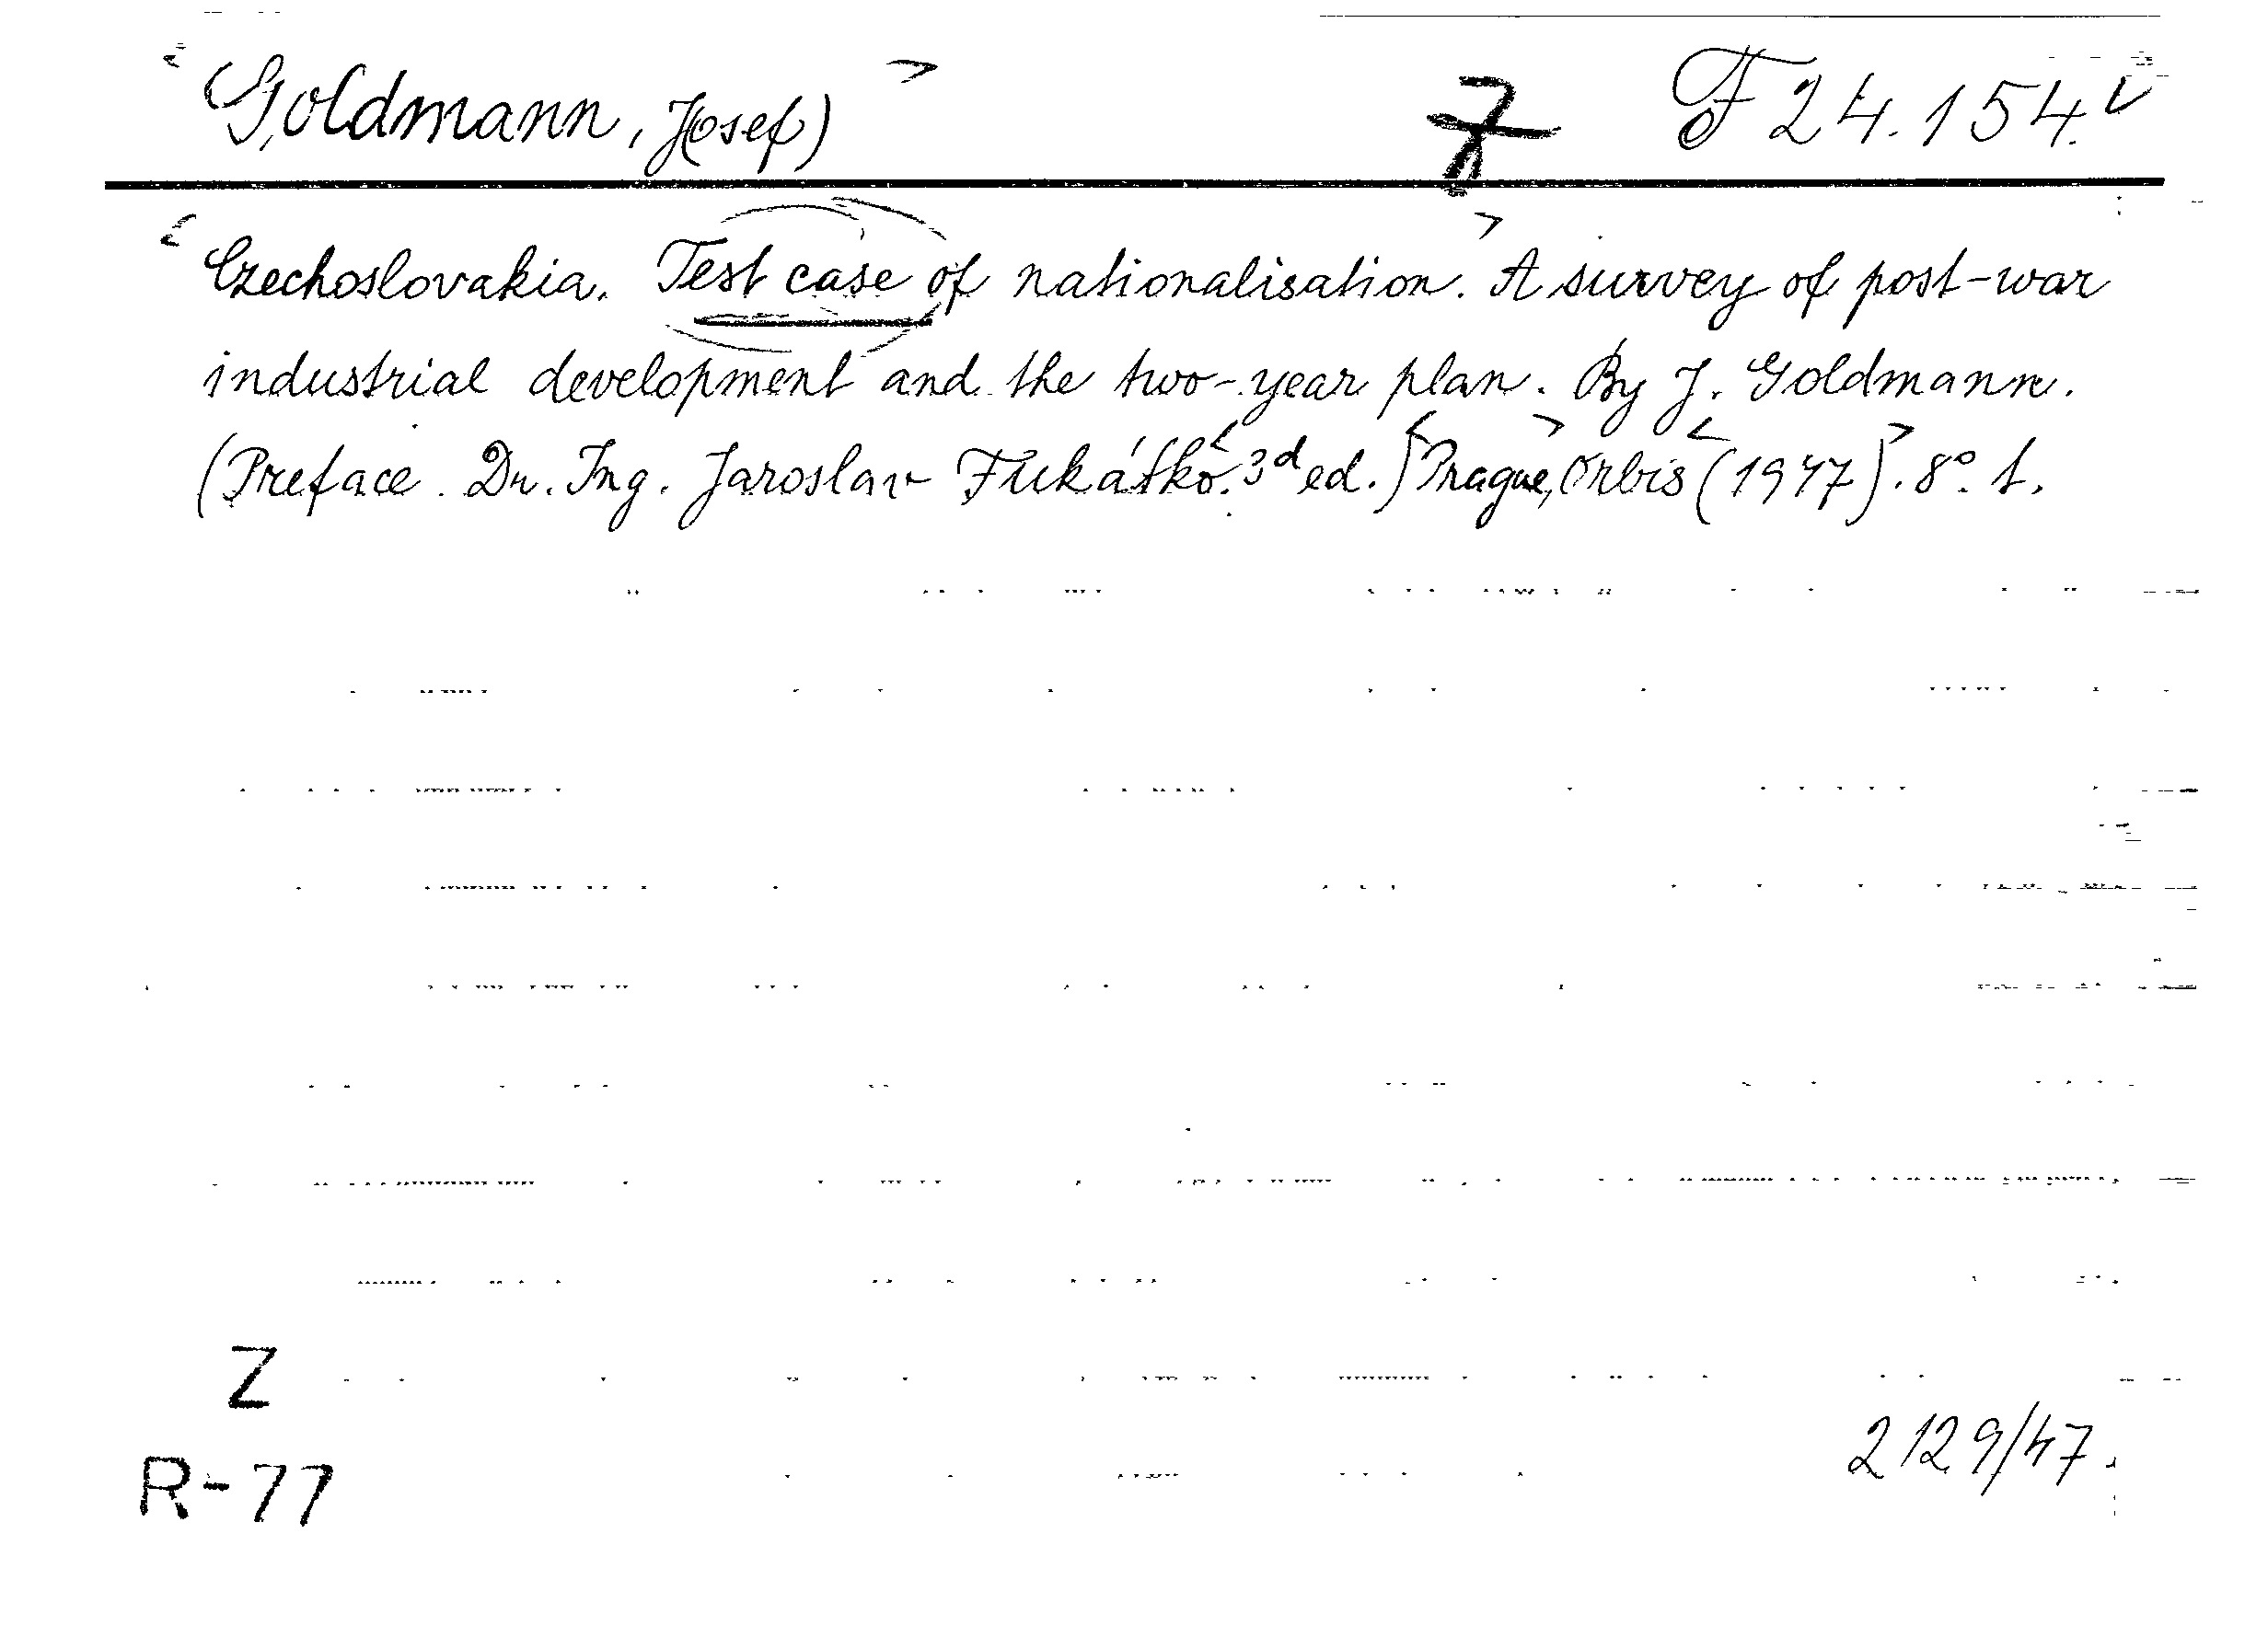 (Goldmann, Josef) 7 F 24.154.
Czechoslovakia. Test case of nationalisation. A survey of post-war
industrial development and the two-year plan. By J. Goldmann.
(Preface. Dr. Ing. Jaroslav Fukátko. 3d ed.) Prague, Orbis (1947). 8°. t.
Z
R-77
2129/47.